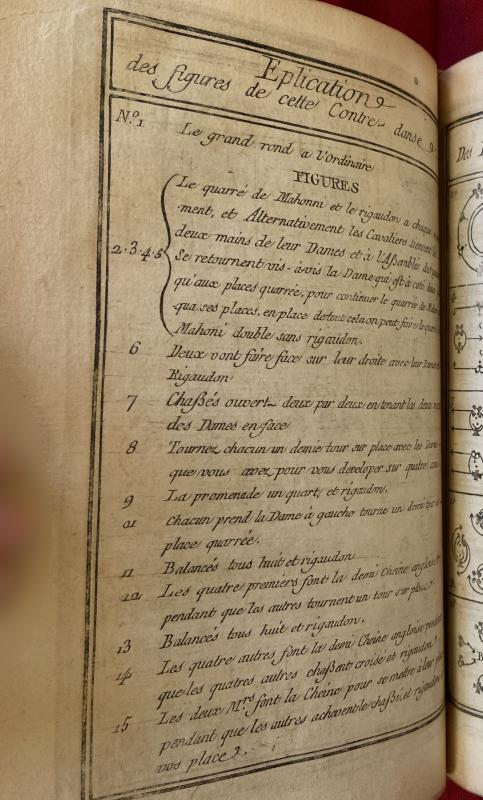 Eplication
des figures de cette Contre-danse 9
N.º 1 Le grand rond a l'Ordinaire
FIGURES
Le quarré de Mahonni et le rigaudon a chaque
ment, et Alternativement les Cavaliers tiennent
deux mains de leur Dames et à l'Aßemblés
2·3·4·5 Se retournent vis-à-vis la Dame qui est à coté
qu'aux places quarrée, pour continuer le quarrée de
qua ses places, en place de tout cela on peut faire le quarré
Mahoni double sans rigaudon.
6 Deux vont faire face sur leur droite avec leur
Rigaudon
7 Chaßés ouvert deux par deux en tenant les deux
des Dames en face
8 Tournez chacun un demie tour sur place avec les Dames
que vous avez pour vous developer sur quatre
9 La promenade un quart, et rigaudon.
01 chacun prend la Dame à gauche tourne un demi tour
place quarrée.
11 Balancés tous huit et rigaudon
12 Les quatre premiers font la demi Cheine angloise
pendant que les autres tournent un tour sur place
13 Balancés tous huit et rigaudon.
14 Les quatre autres font la demi Cheine angloise pendant
que les quatres autres chaßent croise et rigaudon.
15 Les deux Mrs font la Cheine pour se mettre à leur
pendant que les autres achevent le chaßé, et rigaudon
vos place 2.
Des